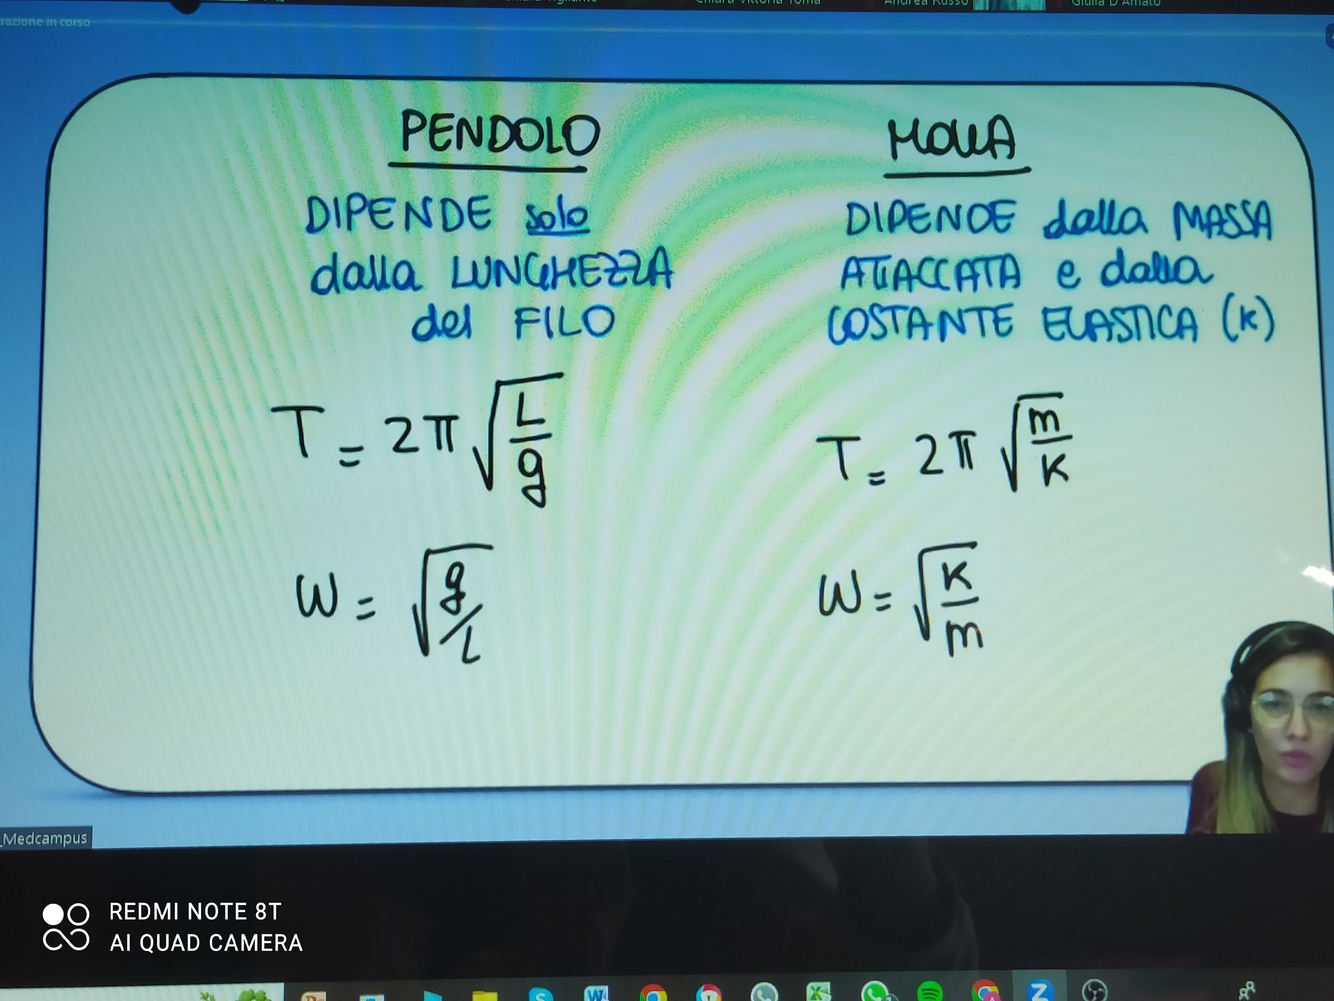 razione in corso
Andrea Russo
Giulia D'Amato
PENDOLO
DIPENDE solo
dalla LUNGHEZZA
del FILO
T = 2π √L/g
W = √g/L
MOLLA
DIPENDE dalla MASSA
ATTACCATA e dalla
COSTANTE ELASTICA (K)
T = 2π √m/K
W = √K/m
_Medcampus
REDMI NOTE 8T
AI QUAD CAMERA